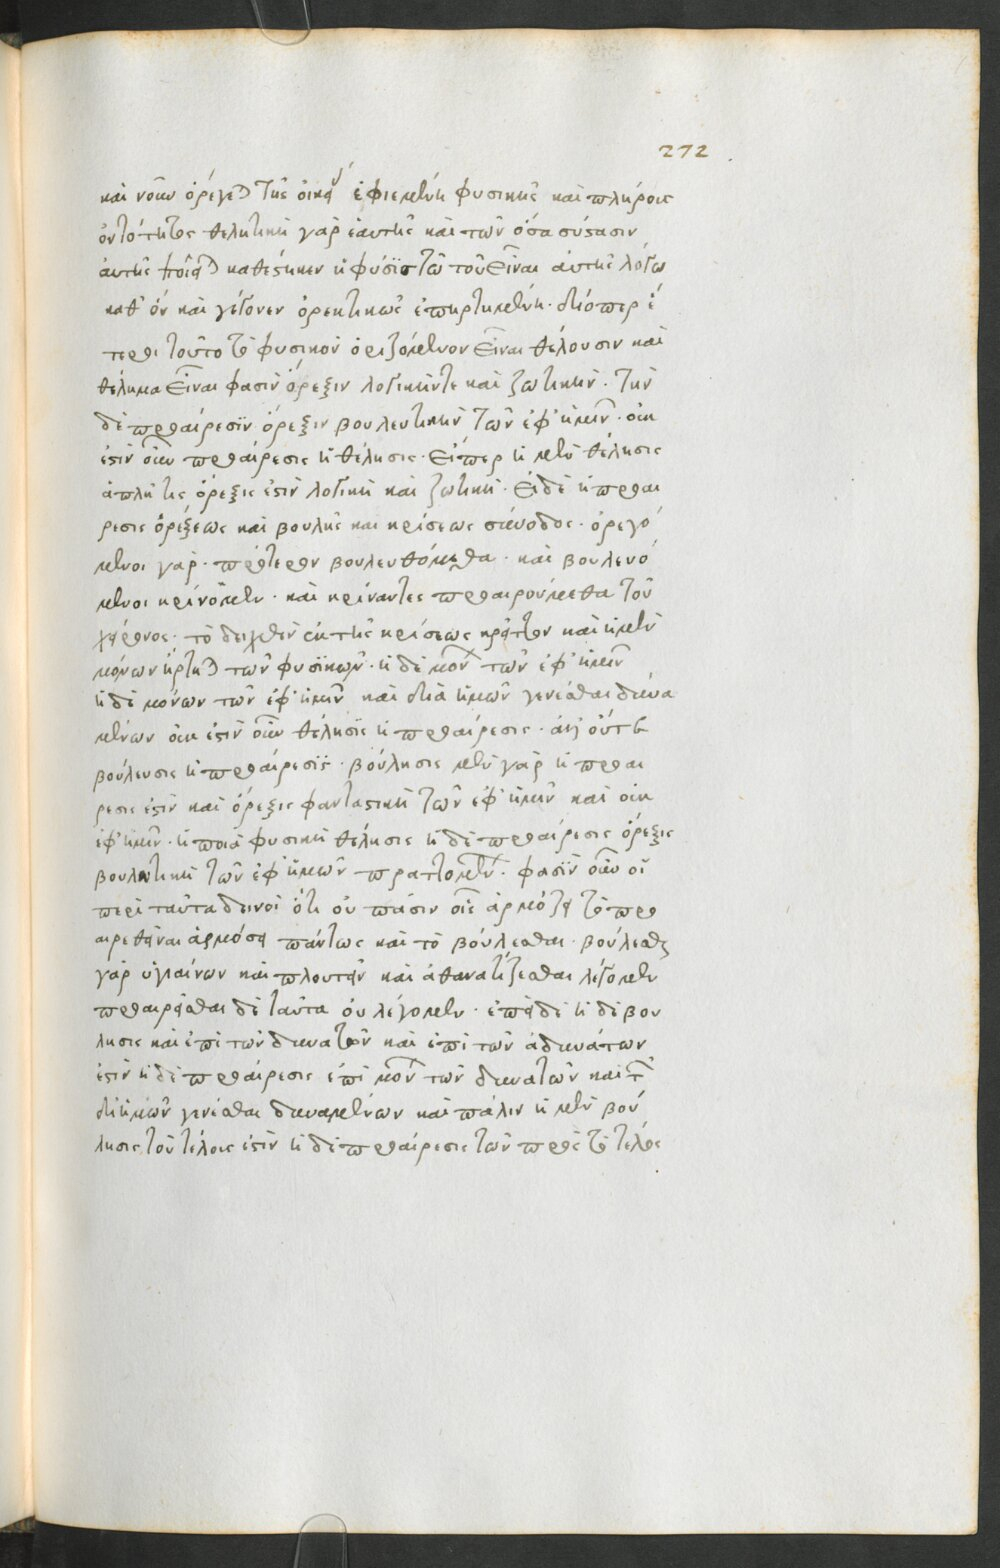 272
καὶ νοεῖν ὀρέγεται τῆς οἰκείας ἐφιεμένη φυσικῆς καὶ πλήρους
ὀντότητος θελητικὴ γὰρ ἑαυτῆς καὶ τῶν ὅσα σύστασιν
αὐτῆς ποιεῖται καθέστηκεν ἡ φύσϊς τῶ τοῦ εἶναι αὐτῆς λόγω
καθ' ὃν καὶ γέγονεν ὀρεκτικῶς ἐπηρτημένη. διόπερ ἕ
τεροι τοῦτο τὸ φυσικὸν ὁριζόμενον εἶναι θέλουσιν καὶ
θέλημα εἶναι φασὶν ὄρεξιν λογικήν τε καὶ ζωτικήν. τὴν
δὲ προαίρεσϊν ὄρεξιν βουλευτικὴν τῶν ἐφ' ἡμῖν. οὐκ
ἔστιν οὖν προαίρεσις ἡ θέλησις. εἴπερ ἡ μὲν θέλησις
ἁπλῆ τις ὄρεξις ἐστὶν λογικὴ καὶ ζωτικὴ. εἰ δὲ ἡ προαι
ρεσις ὀρέξεως καὶ βουλῆς καὶ κρίσεως σύνοδος. ὀρεγό
μενοι γὰρ. πρότερον βουλευθόμεθα. καὶ βουλευό
μενοι κρίνομεν. καὶ κρίναντες προαιρούμεθα τοῦ
χείρονος. τὸ δειχθὲν ἐκ τῆς κρίσεως κρεῖττον καὶ ἡ μὲν
μόνων ἤρτηται τῶν φυσϊκῶν. ἡ δὲ μόνον τῶν ἐφ' ἡμῖν
ἡ δὲ μόνων τῶν ἐφ' ἡμῖν καὶ διὰ ἡμῶν γενέσθαι δυνα
μένων οὐκ ἔστιν οὖν θέλησϊς ἡ προαίρεσις. ἀλλ' οὔτε
βούλευσις ἡ προαίρεσϊς. βούλησις μὲν γὰρ ἡ προαι
ρεσις ἐστὶν καὶ ὄρεξις φανταστικὴ τῶν ἐφ' ἡμῖν καὶ οὐκ
ἐφ' ἡμῖν. ἡ ποιὰ φυσικὴ θέλησις ἡ δὲ προαίρεσις ὄρεξις
βουλητικὴ τῶν ἐφ' ἡμῶν πραττομένων. φασϊν οὖν οἱ
περὶ ταῦτα δεινοὶ ὅτι οὐ πᾶσιν οἷς ἁρμόζει τὸ προ
αιρεθῆναι ἁρμόσει πάντως καὶ τὸ βούλεσθαι. βούλεσθαι
γὰρ ὑγιαίνων καὶ πλουτεῖν καὶ ἀθανατίζεσθαι λέγομεν
προαιρεῖσθαι δὲ ταῦτα οὐ λέγομεν. ἐπειδὶ ἡ δὲ βου
λησις καὶ ἐπὶ τῶν δυνατῶν καὶ ἐπὶ τῶν ἀδυνάτων
ἐστὶν ἡ δὲ προαίρεσις ἐπὶ μόνον τῶν δυνατῶν καὶ τῶν
δι' ἡμῶν γενέσθαι δυναμένων καὶ πάλιν ἡ μὲν βού
λησις τοῦ τέλους ἐστὶν ἡ δὲ προαίρεσις τῶν πρὸς τὸ τέλος